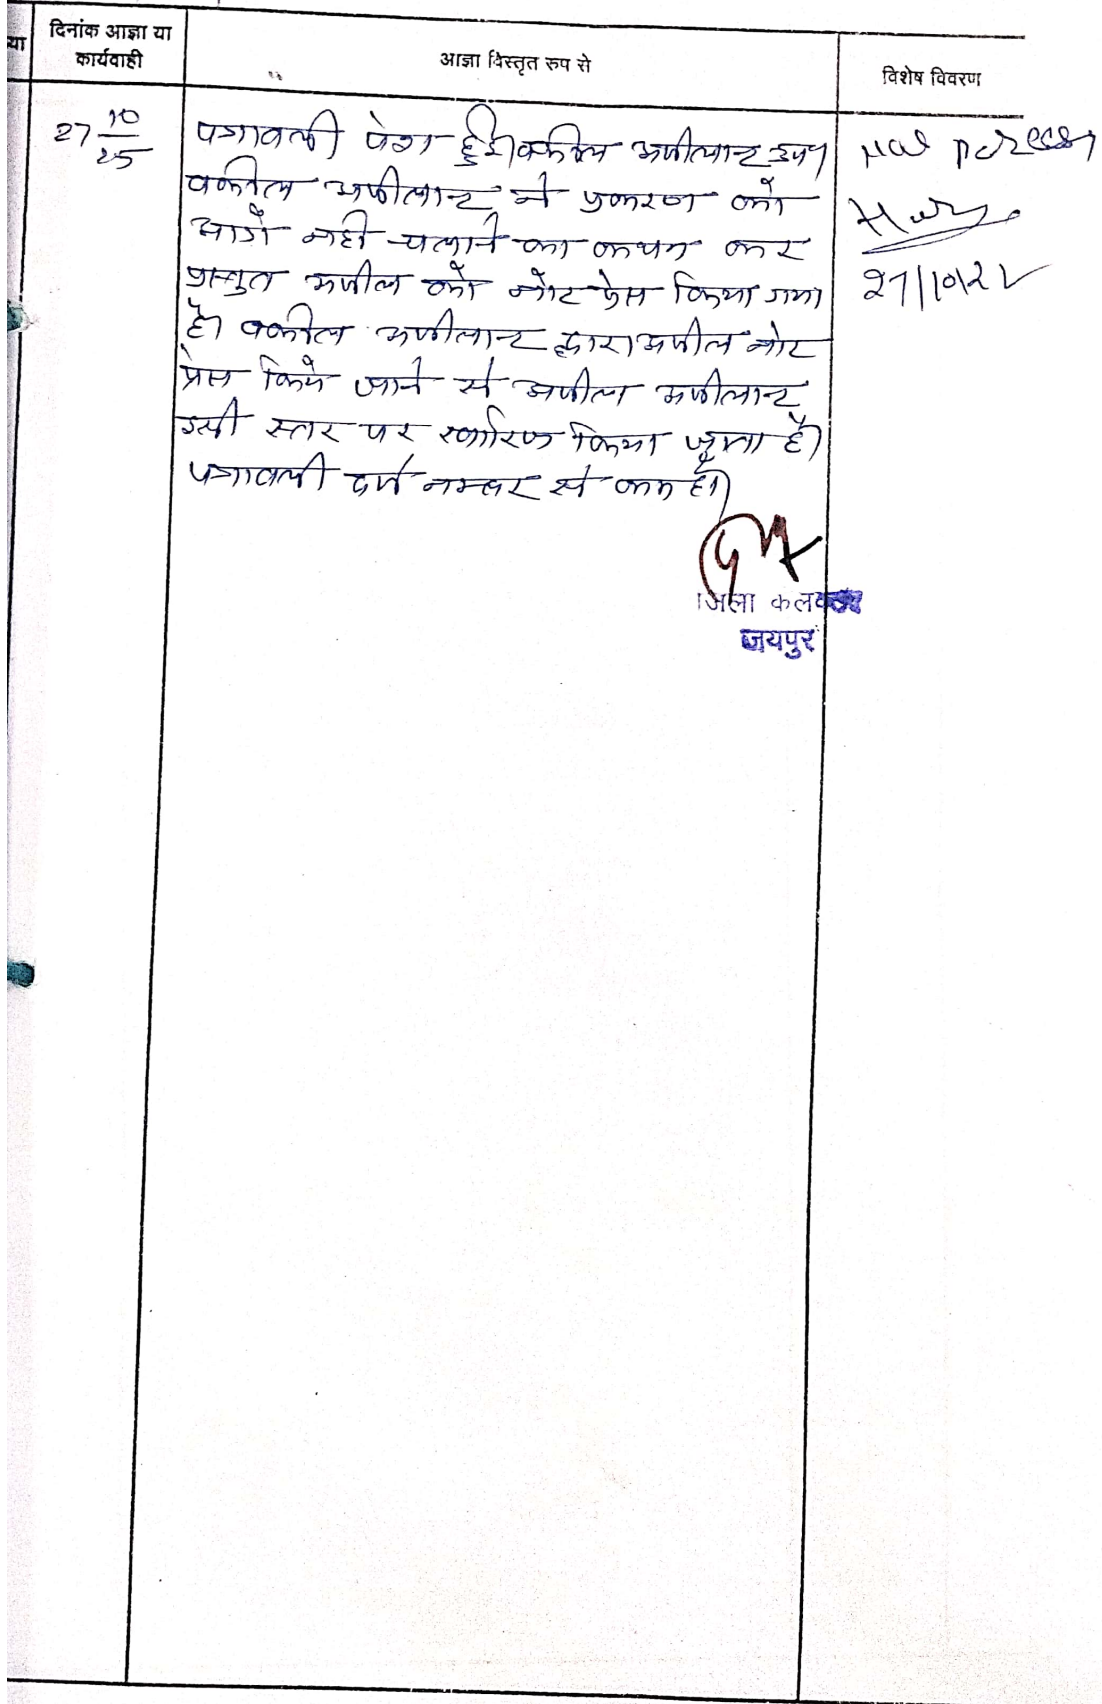 या
दिनांक आज्ञा या
कार्यवाही
आज्ञा विस्तृत रुप से
विशेष विवरण
27 10/25
पत्रावली पेश हुई। वकील अपीलान्ट उप।
वकील अपीलान्ट ने प्रकरण को
आगे नही चलाने का कथन कर
प्रस्तुत अपील को नोट प्रेस किया गया
है। वकील अपीलान्ट द्वारा अपील नोट
प्रेस किये जाने से अपील अपीलान्ट
इसी स्तर पर खारिज किया जाता है।
पत्रावली दर्ज नम्बर से कम हो।
जिला कलक्टर
जयपुर
Not press
27/10/25